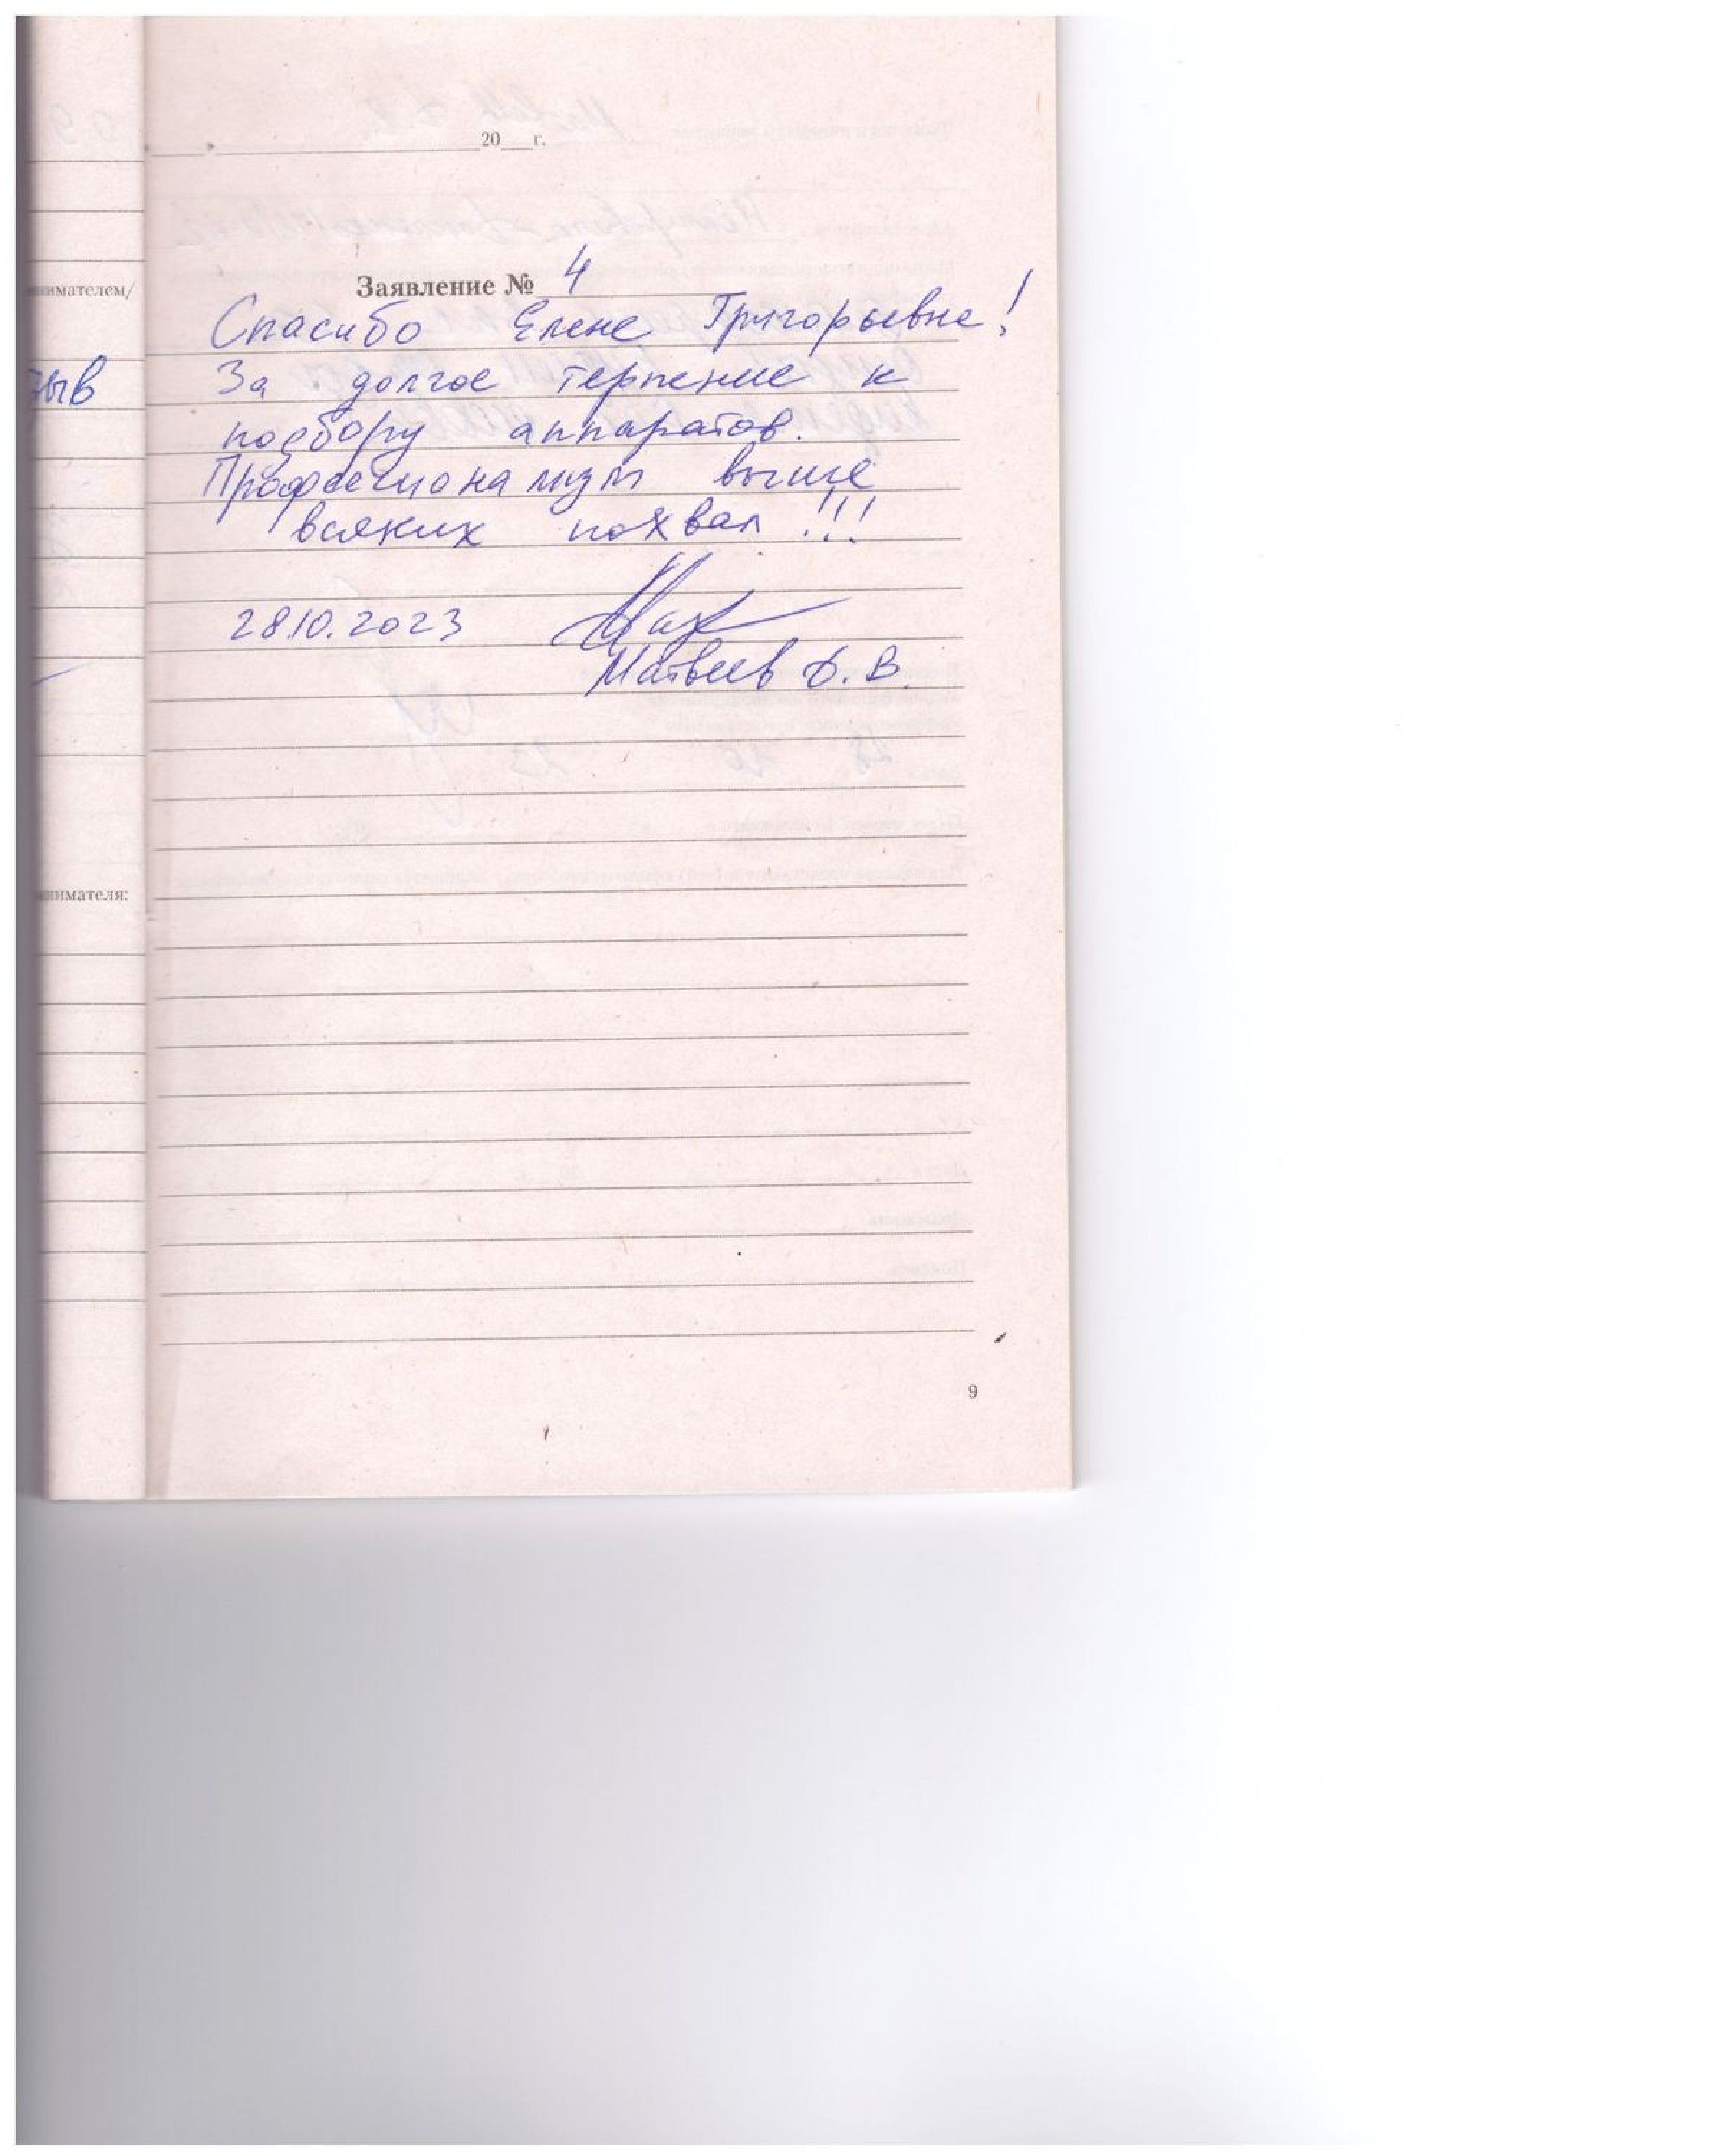 20 г.
Заявление № 4
нимателем/
Спасибо Елене Григорьевне!
За долгое терпение к
подбору аппаратов.
Профессионализм выше
всяких похвал!!!
28.10.2023
Матвеев
нимателя:
9